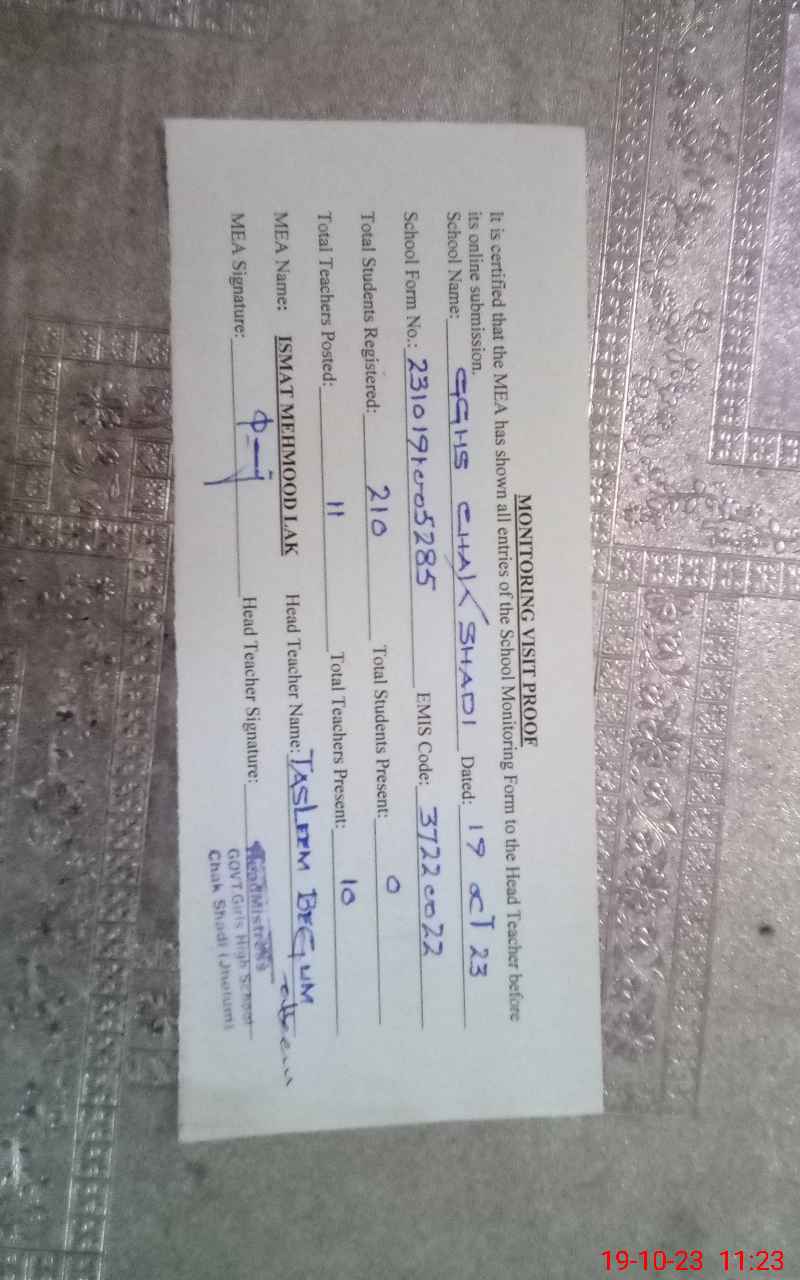 MONITORING VISIT PROOF
It is certified that the MEA has shown all entries of the School Monitoring Form to the Head Teacher before
its online submission.
School Name: GGHS CHAK SHADI Dated: 19 OCT 23
School Form No.: EMIS Code: 37220022
Total Students Registered: 210 Total Students Present: 0
Total Teachers Posted: 11 Total Teachers Present: 10
MEA Name: ISMAT MEHMOOD LAK Head Teacher Name: TASLEEM BEGUM
MEA Signature: Head Teacher Signature:
HeadMistress
GOVT Girls High School
Chak Shadi (Jhelum)
19-10-23 11:23